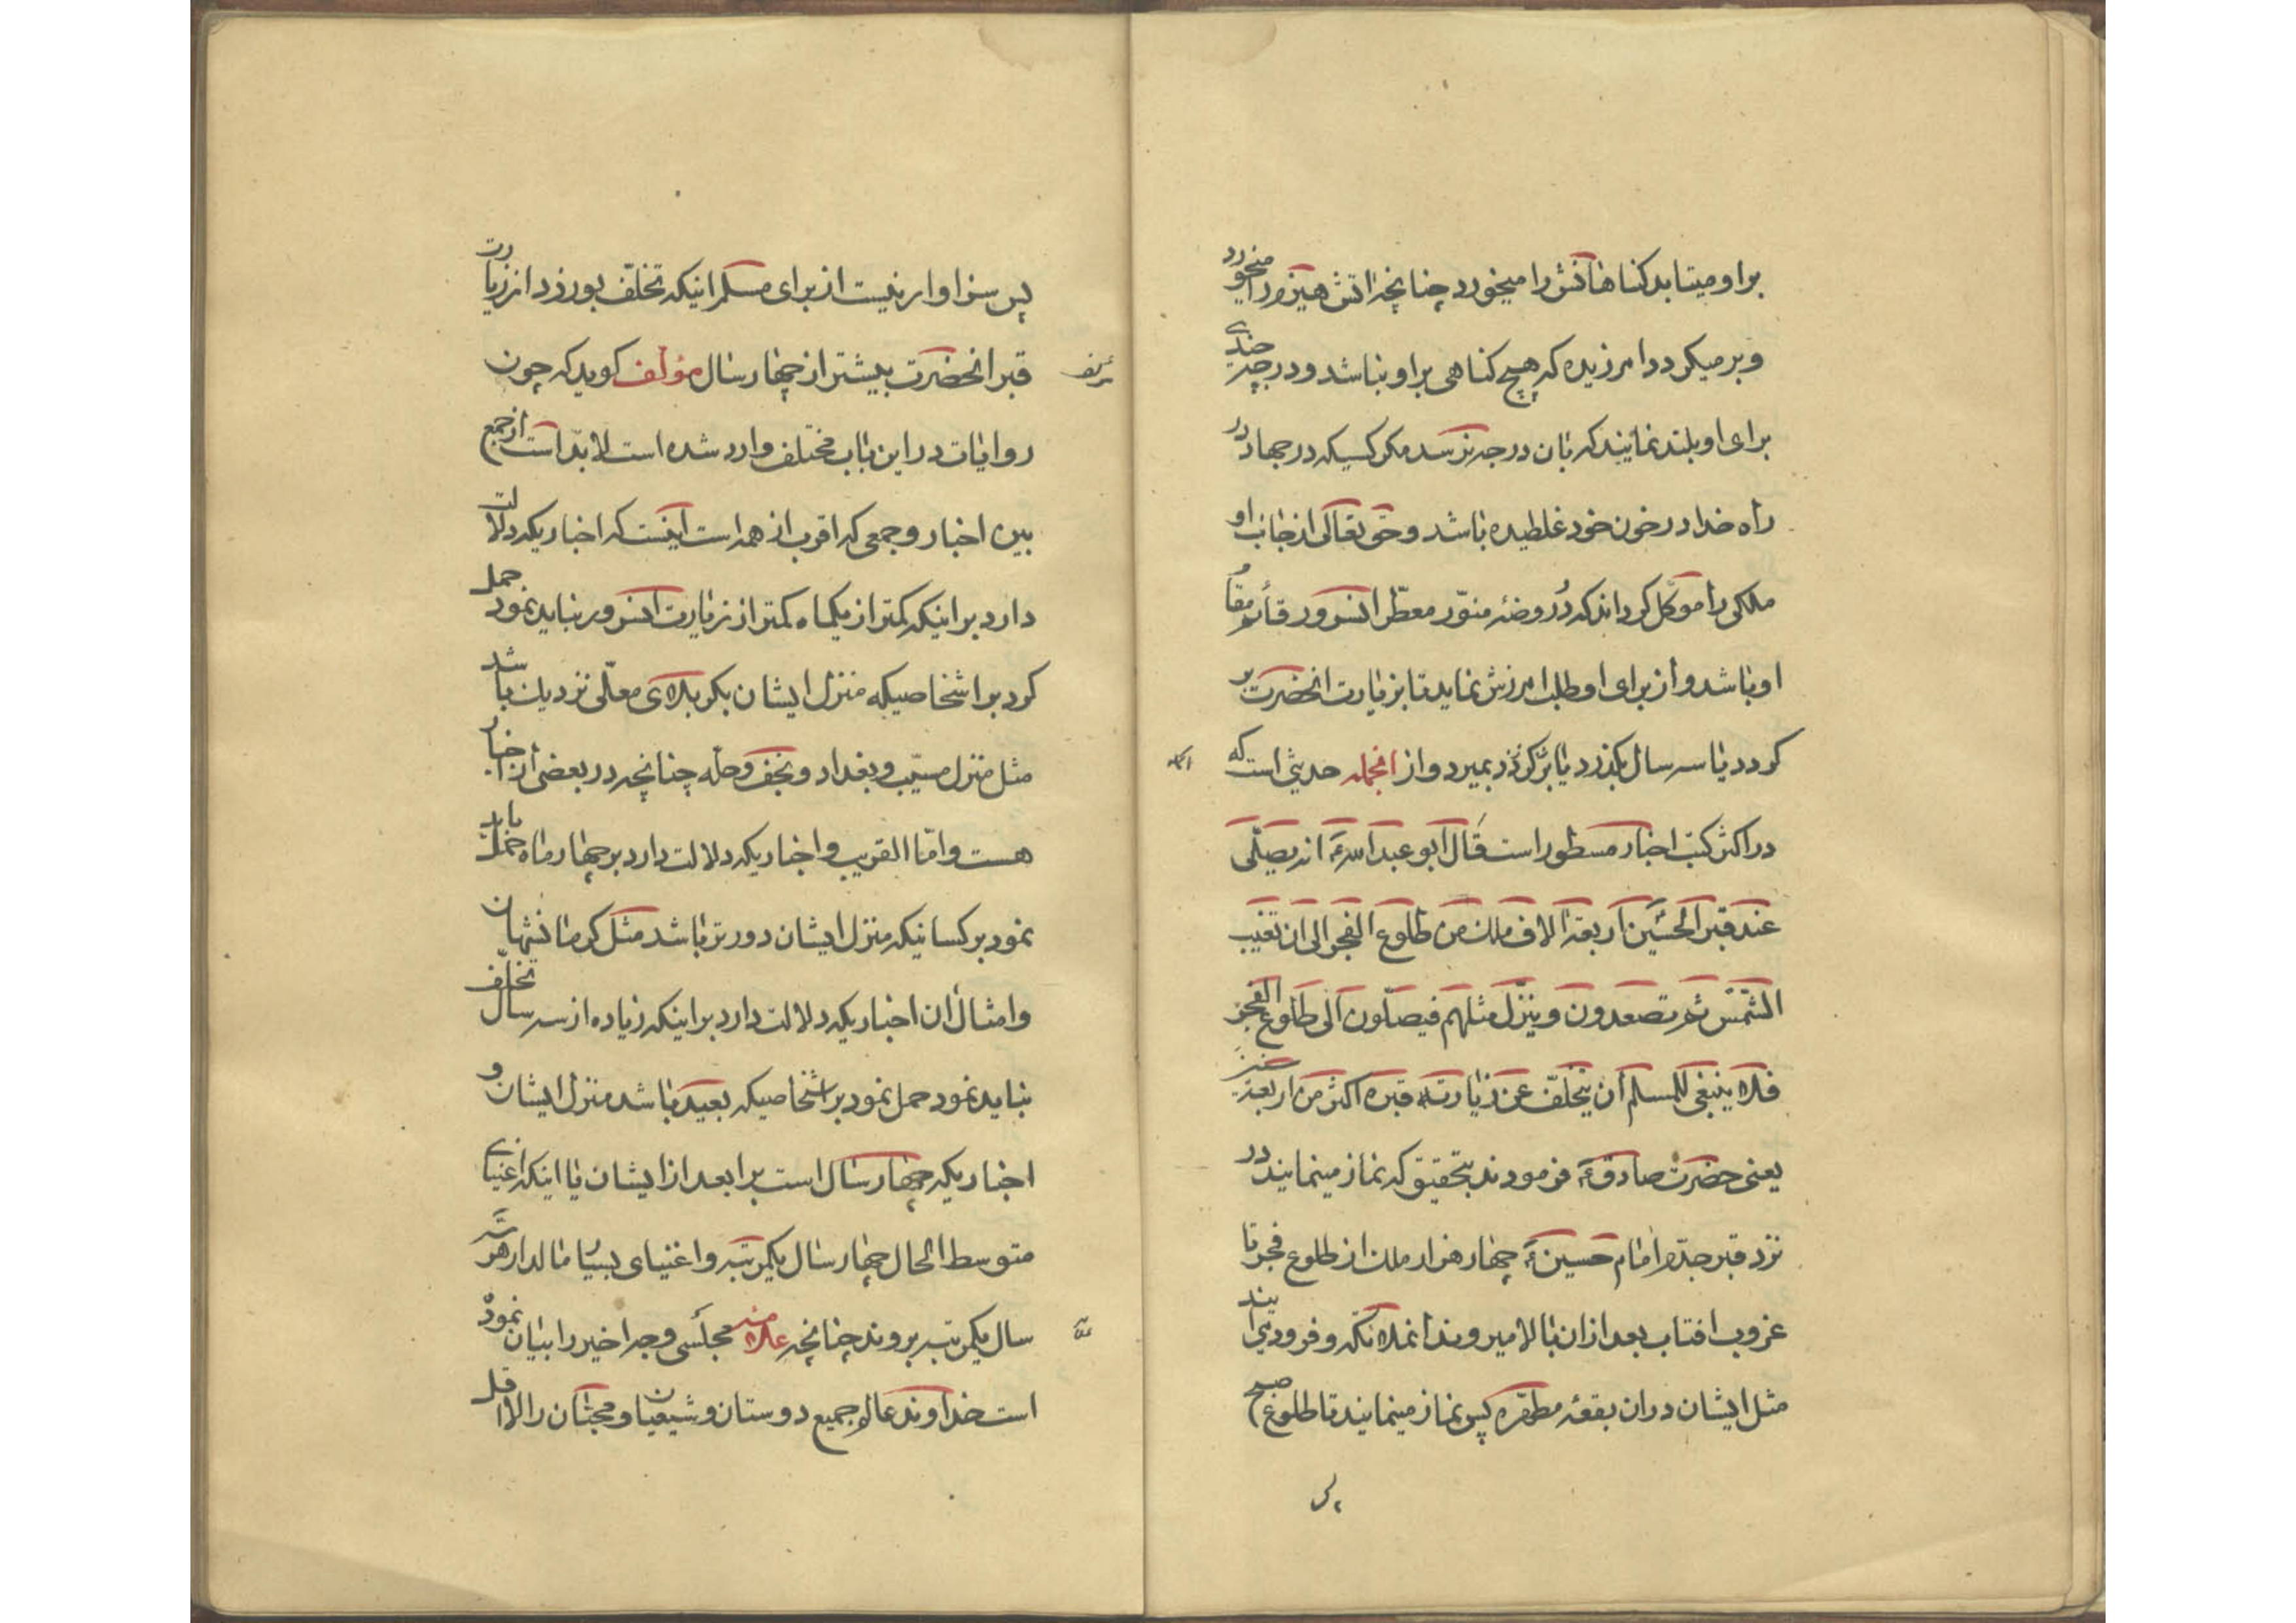 براو میتابد کناهانش را میخورد چنانچه اتش هیزم را میخورد
و برمیکردد امرزیده که هیچ کناهی براو نباشد و درجه چندی
برای او بلند نمایند که بان درجه نرسد مکر کسیکه در جهاد در
راه خدا در خون خود غلطیده باشد و حق تعالی از جانب او
ملکی را موکّل کرداند که در روضهٔ منوّر معطّر انسرور قائم مقام
او باشد و از برای او طلب امرزش نماید تا بزیارت انحضرت بر
کردد یا سه سال بکذرد یا بمیرد و از انجمله حدیثی است که
در اکثر کتب اخبار مسطور است قال ابو عبد الله ع انه یصلّی
عند قبر الحسین اربعة الاف ملک من طلوع الفجر الی ان تغیب
الشمس ثم تصعدون و ینزّل مثلهم فیصلّون الی طلوع الفجر
فلا ینبغی للمسلم ان یتخلّف عن زیارته قبره اکثر من اربعة سنین
یعنی حضرت صادق ع فرمودند بتحقیق که نماز مینمایند در
نزد قبر جدّم امام حسین ع چهار هزار ملک از طلوع فجر تا
غروب افتاب بعد از ان بالا میروند انملائکه و فرود می ایند
مثل ایشان در ان بقعهٔ مطهّره پس نماز مینمایند تا طلوع صبح
پس
پس سزاوار نیست از برای مسلم اینکه تخلّف بورزد از زیارت
قبر انحضرت بیشتر از چهار سال مؤلف کوید که چون
روایات در این باب مختلف وارد شده است لابدّ است از جمع
بین اخبار و جمعی که اقرب از همه است اینست که اخباریکه دلالت
دارد بر اینکه کمتر از یکماه کمتر از زیارت انسرور نباید نمود حمل
کرد بر اشخاصیکه منزل ایشان بکربلای معلّی نزدیک باشد
مثل منزل مسیّب و بغداد و نجف و حلّه چنانچه در بعضی از اخبار
هست و امّا القریب و اخباریکه دلالت دارد بر چهار ماه حمل باید
نمود بر کسانیکه منزل ایشان دورتر باشد مثل کرمانشهان
و امثال ان اخباریکه دلالت دارد بر اینکه زیاده از سه سال تخلّف
نباید نمود حمل نمود بر اشخاصیکه بعید باشد منزل ایشان و
اخباریکه چهار سال است بر ابعد از ایشان یا اینکه اغنیای
متوسط الحال چهار سال یکمرتبه و اغنیای بسیار مالدار هر سه
سال یکمرتبه بروند چنانچه علامه مجلسی وجه اخیر را بیان نموده
است خداوند عالم جمیع دوستان و شیعیان و محبّان را لا اقل